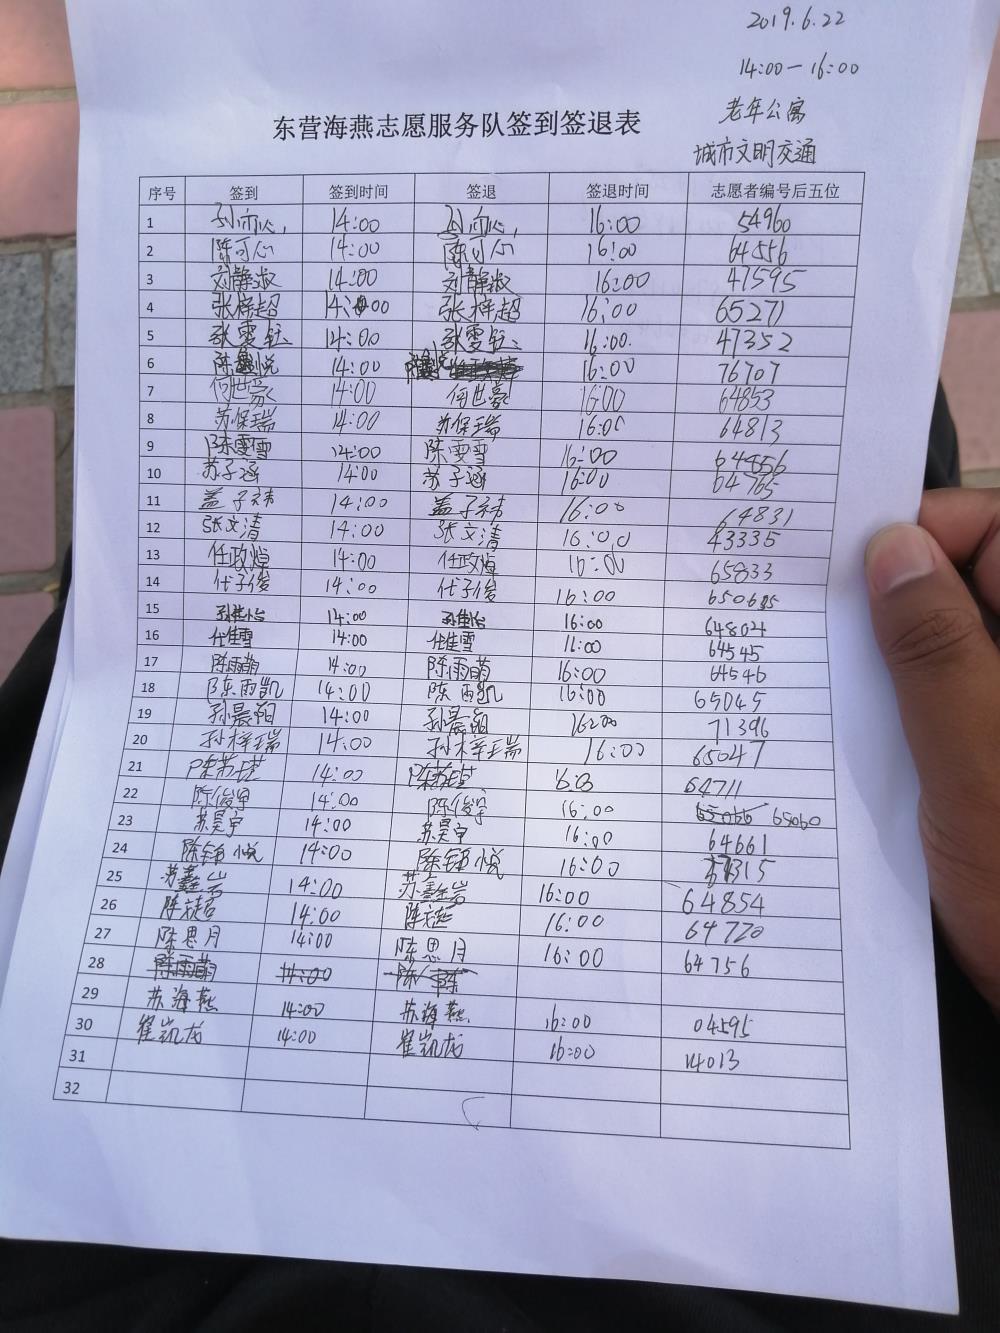 2019.6.22
14:00—16:00
老年公寓
东营海燕志愿服务队签到签退表
城市文明交通
序号 签到 签到时间 签退 签退时间 志愿者编号后五位
1 14:00 16:00 54960
2 陈可心 14:00 陈可心 16:00 64556
3 刘静淑 14:00 刘静淑 16:00 47595
4 张梓超 14:00 张梓超 16:00 65271
5 张雯钰 14:00 张雯钰 16:00. 47352
6 14:00 16:00 76707
7 何世豪 14:00 何世豪 16:00 64853
8 苏保瑞 14:00 苏保瑞 16:00 64813
9 陈雯雪 14:00 陈雯雪 16:00 64856
10 苏子涵 14:00 苏子涵 16:00 64765
11 盖子祎 14:00 盖子祎 16:00 64831
12 张文清 14:00 张文清 16:00 43335
13 任政焯 14:00 任政焯 16:00 65833
14 代子俊 14:00 代子俊 16:00
15 孙佳怡 14:00 孙佳怡 16:00 64804
16 任佳雪 14:00 任佳雪 16:00 64545
17 陈雨萌 14:00 陈雨萌 16:00 64546
18 陈雨凯 14:00 陈雨凯 16:00 65045
19 孙晨翔 14:00 孙晨翔 16:00 71396
20 孙梓瑞 14:00 孙梓瑞 16:00 65047
21 14:00 16:00 64711
22 陈俊宇 14:00 陈俊宇 16:00 65060
23 苏昊宇 14:00 苏昊宇 16:00 64661
24 陈钰悦 14:00 陈钰悦 16:00 37315
25 苏鑫岩 14:00 苏鑫岩 16:00 64854
26 14:00 16:00 64720
27 陈思月 14:00 陈思月 16:00 64756
28 陈雨萌 14:00
29 苏海燕 14:00 苏海燕 16:00 04595
30 崔凯龙 14:00 崔凯龙 16:00 14013
31
32